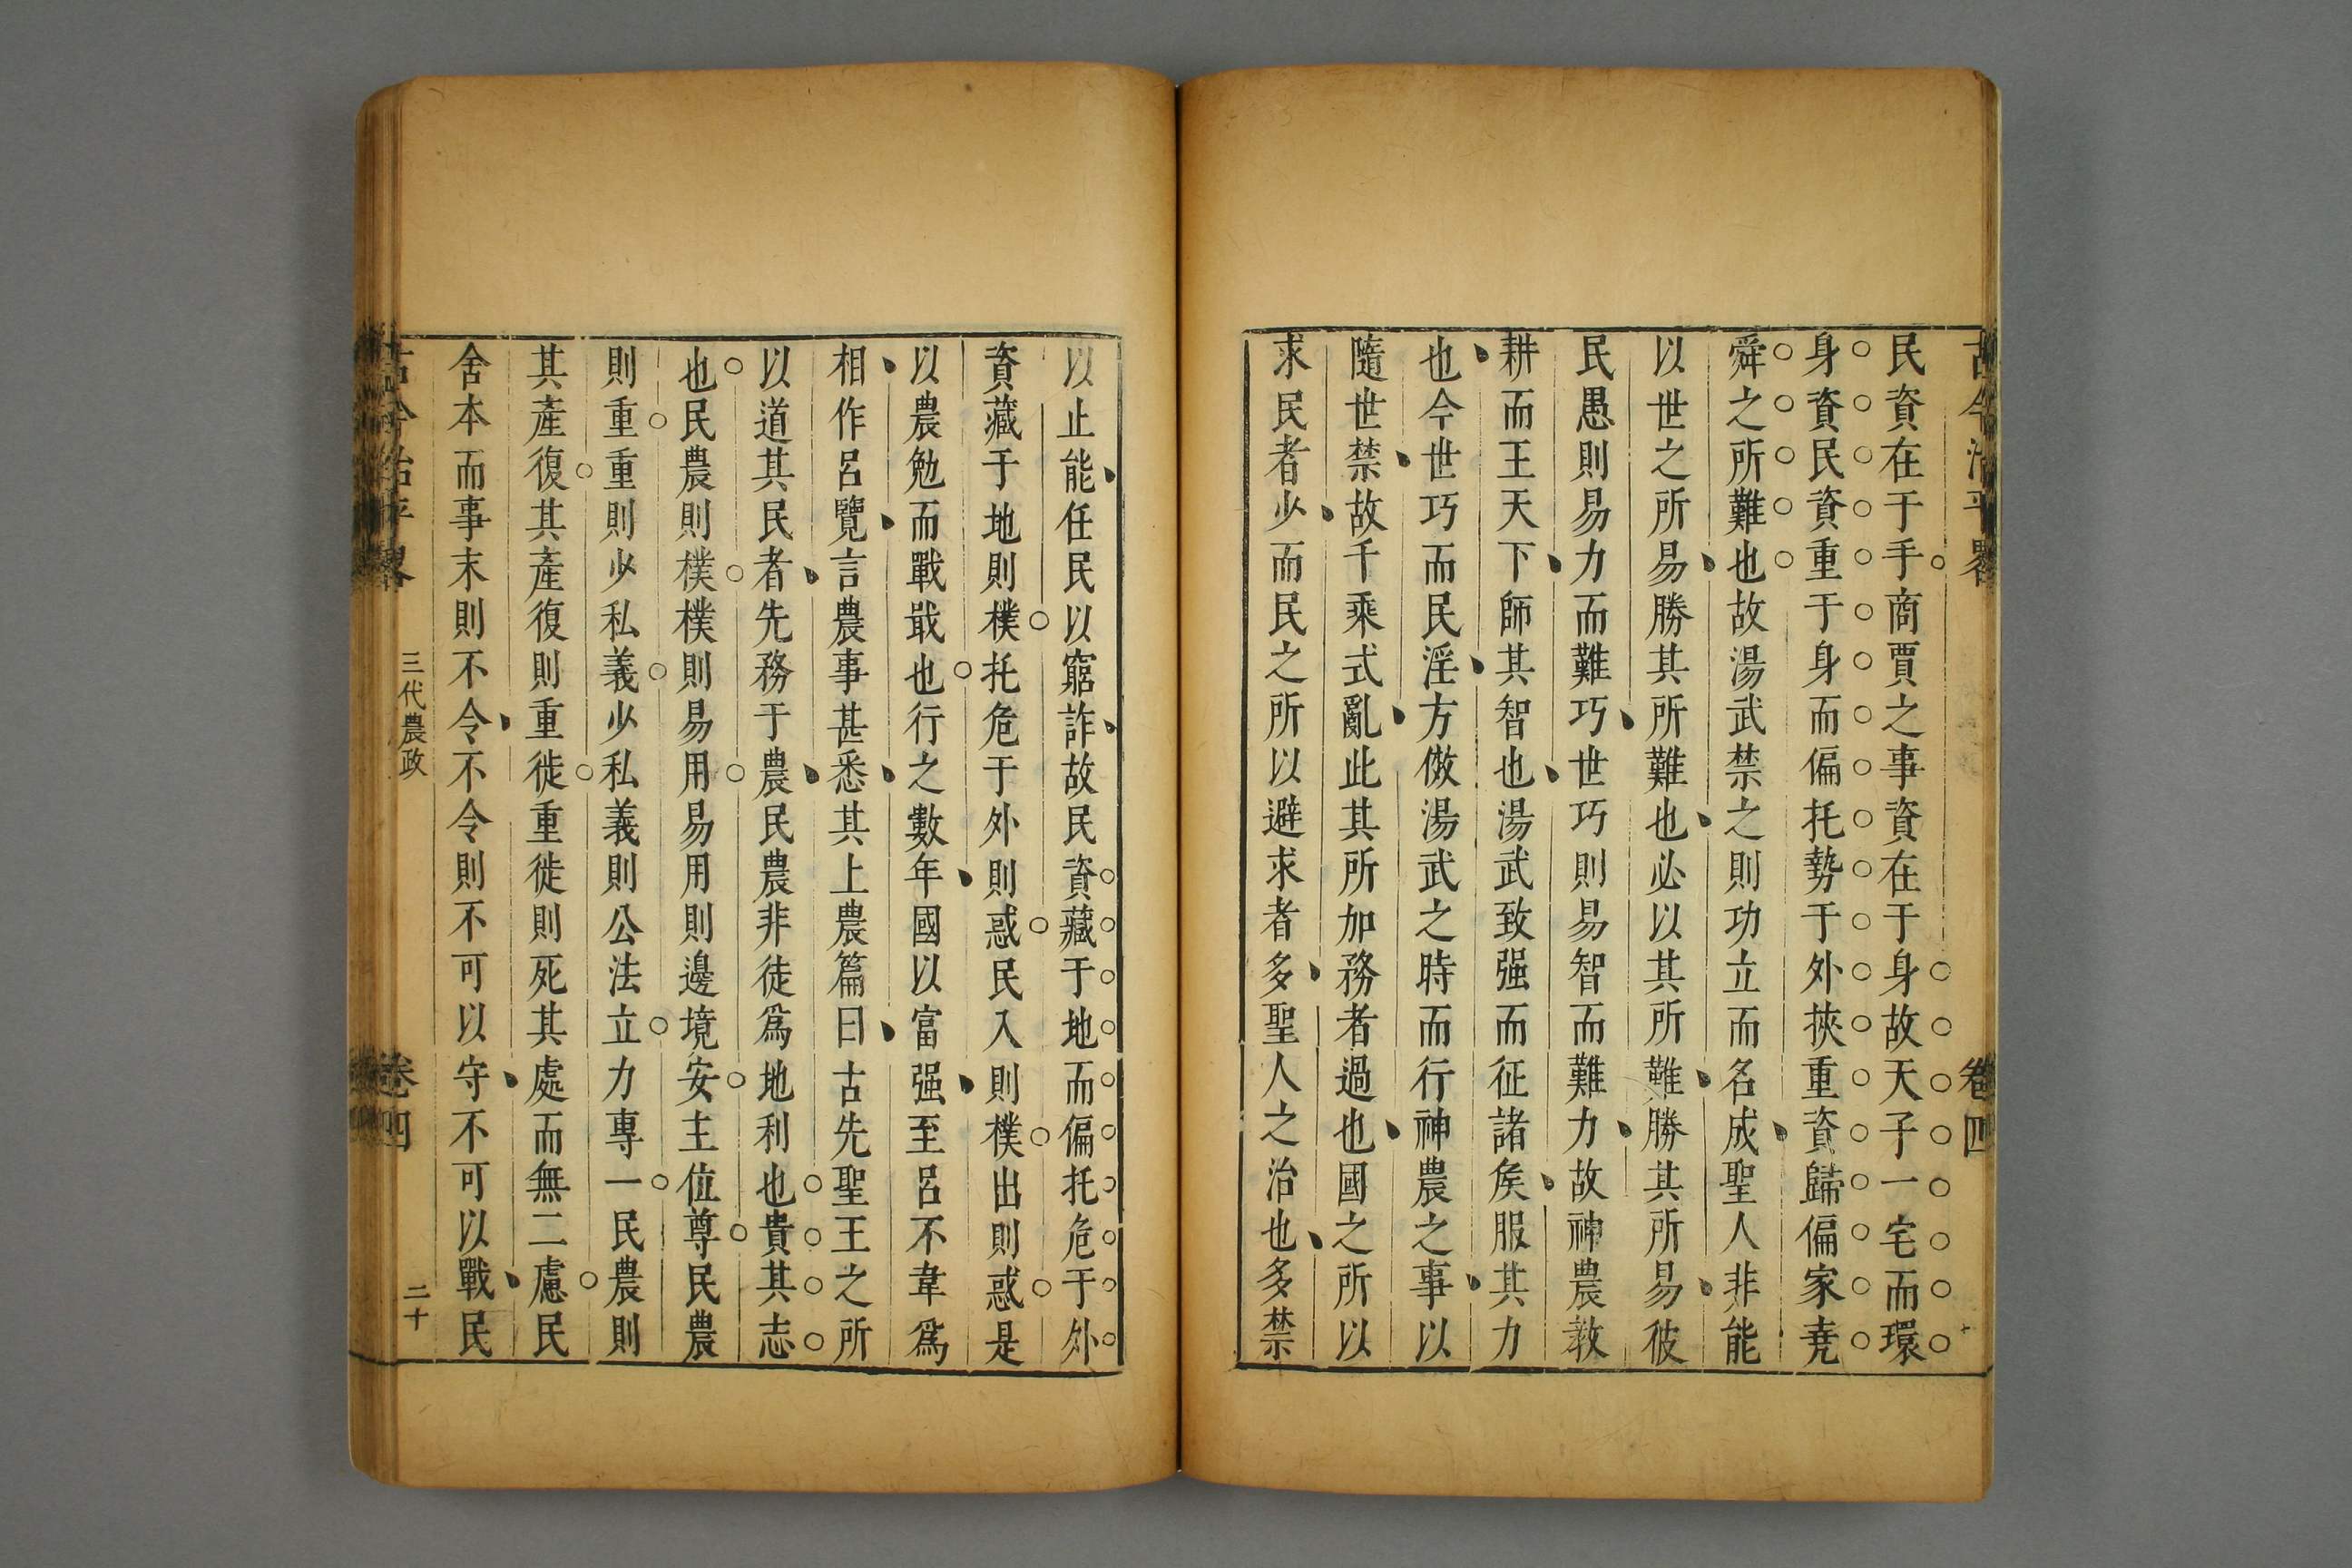 古今治平畧
卷四
民資在于手商賈之事資在于身故天子一宅而環
身資民資重于身而偏托勢于外挾重資歸偏家堯
舜之所難也故湯武禁之則功立而名成聖人非能
以世之所易勝其所難也必以其所難勝其所易彼
民愚則易力而難巧世巧則易智而難力故神農教
耕而王天下師其智也湯武致强而征諸矦服其力
也今世巧而民淫方倣湯武之時而行神農之事以
隨世禁故千乘式亂此其所加務者過也國之所以
求民者少而民之所以避求者多聖人之治也多禁
以止能任民以窮詐故民資藏于地而偏托危于外
資藏于地則樸托危于外則惑民入則樸出則惑是
以農勉而戰戢也行之數年國以富强至呂不韋爲
相作呂覽言農事甚悉其上農篇曰古先聖王之所
以道其民者先務于農民農非徒爲地利也貴其志
也民農則樸樸則易用易用則邊境安主位尊民農
則重重則少私義少私義則公法立力專一民農則
其產復其產復則重徙重徙則死其處而無二慮民
舍本而事末則不令不令則不可以守不可以戰民
古今治平畧
三代農政
卷四
二十